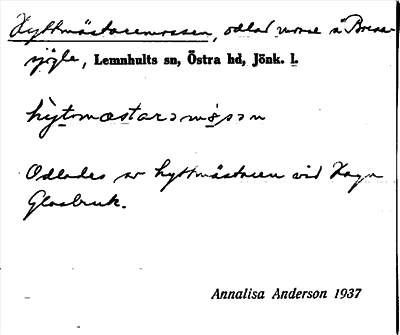 Hyttmästaremossen, odlad mosse å Bresa-
sjögle, Lemnhults sn, Östra hd, Jönk. l.
hỳtmæstarəmòsən
Odlades av hyttmästaren vid Haga
Glasbruk.
Annalisa Anderson 1937